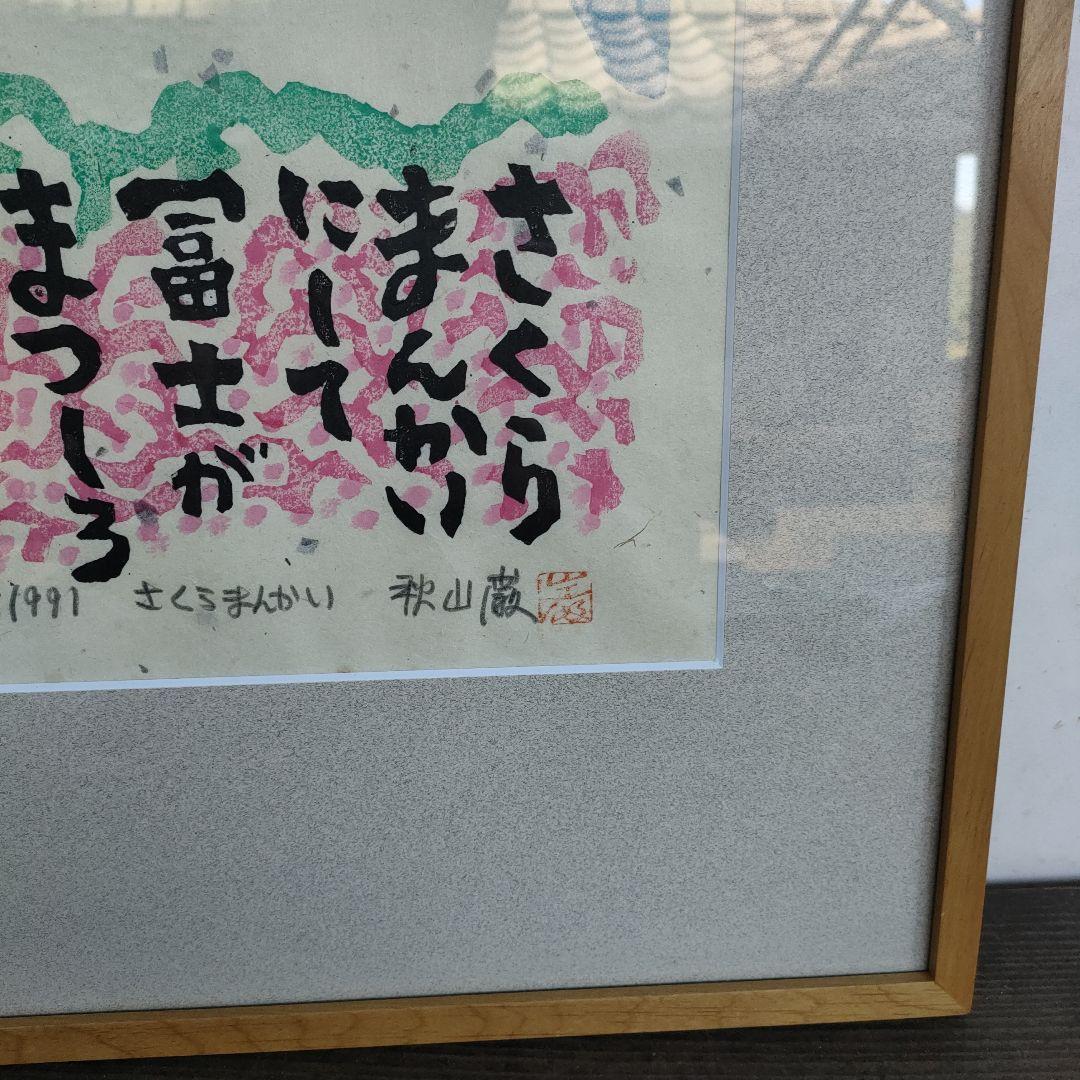 さくら
まんかい
にして
冨士が
まつしろ
1991 さくらまんかい 秋山巌